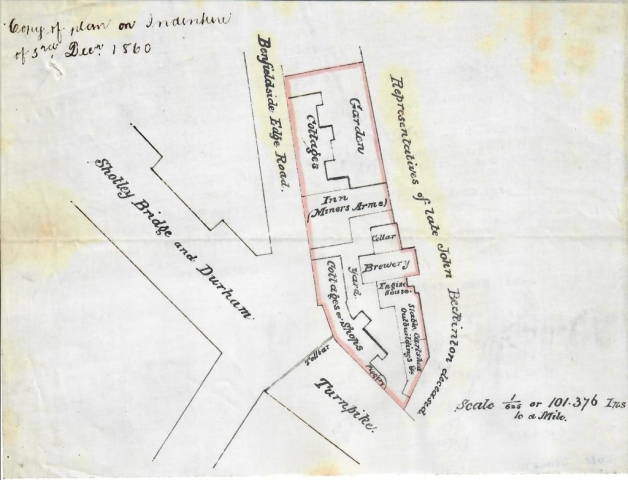 Copy of plan on Indenture
of 3rd Decr 1860
Benfieldside Edge Road.
Representatives of late John Beckinton deceased
Garden
Cottages
Inn
(Miners Arms)
Cellar
Brewery
Engine
House.
Yard.
Cottages or Shops
Stables, Cartshed
Outbuildings &c
Shotley Bridge and Durham
Tollbar
Turnpike.
Scale 1/625 or 101.376 Ins
to a Mile.